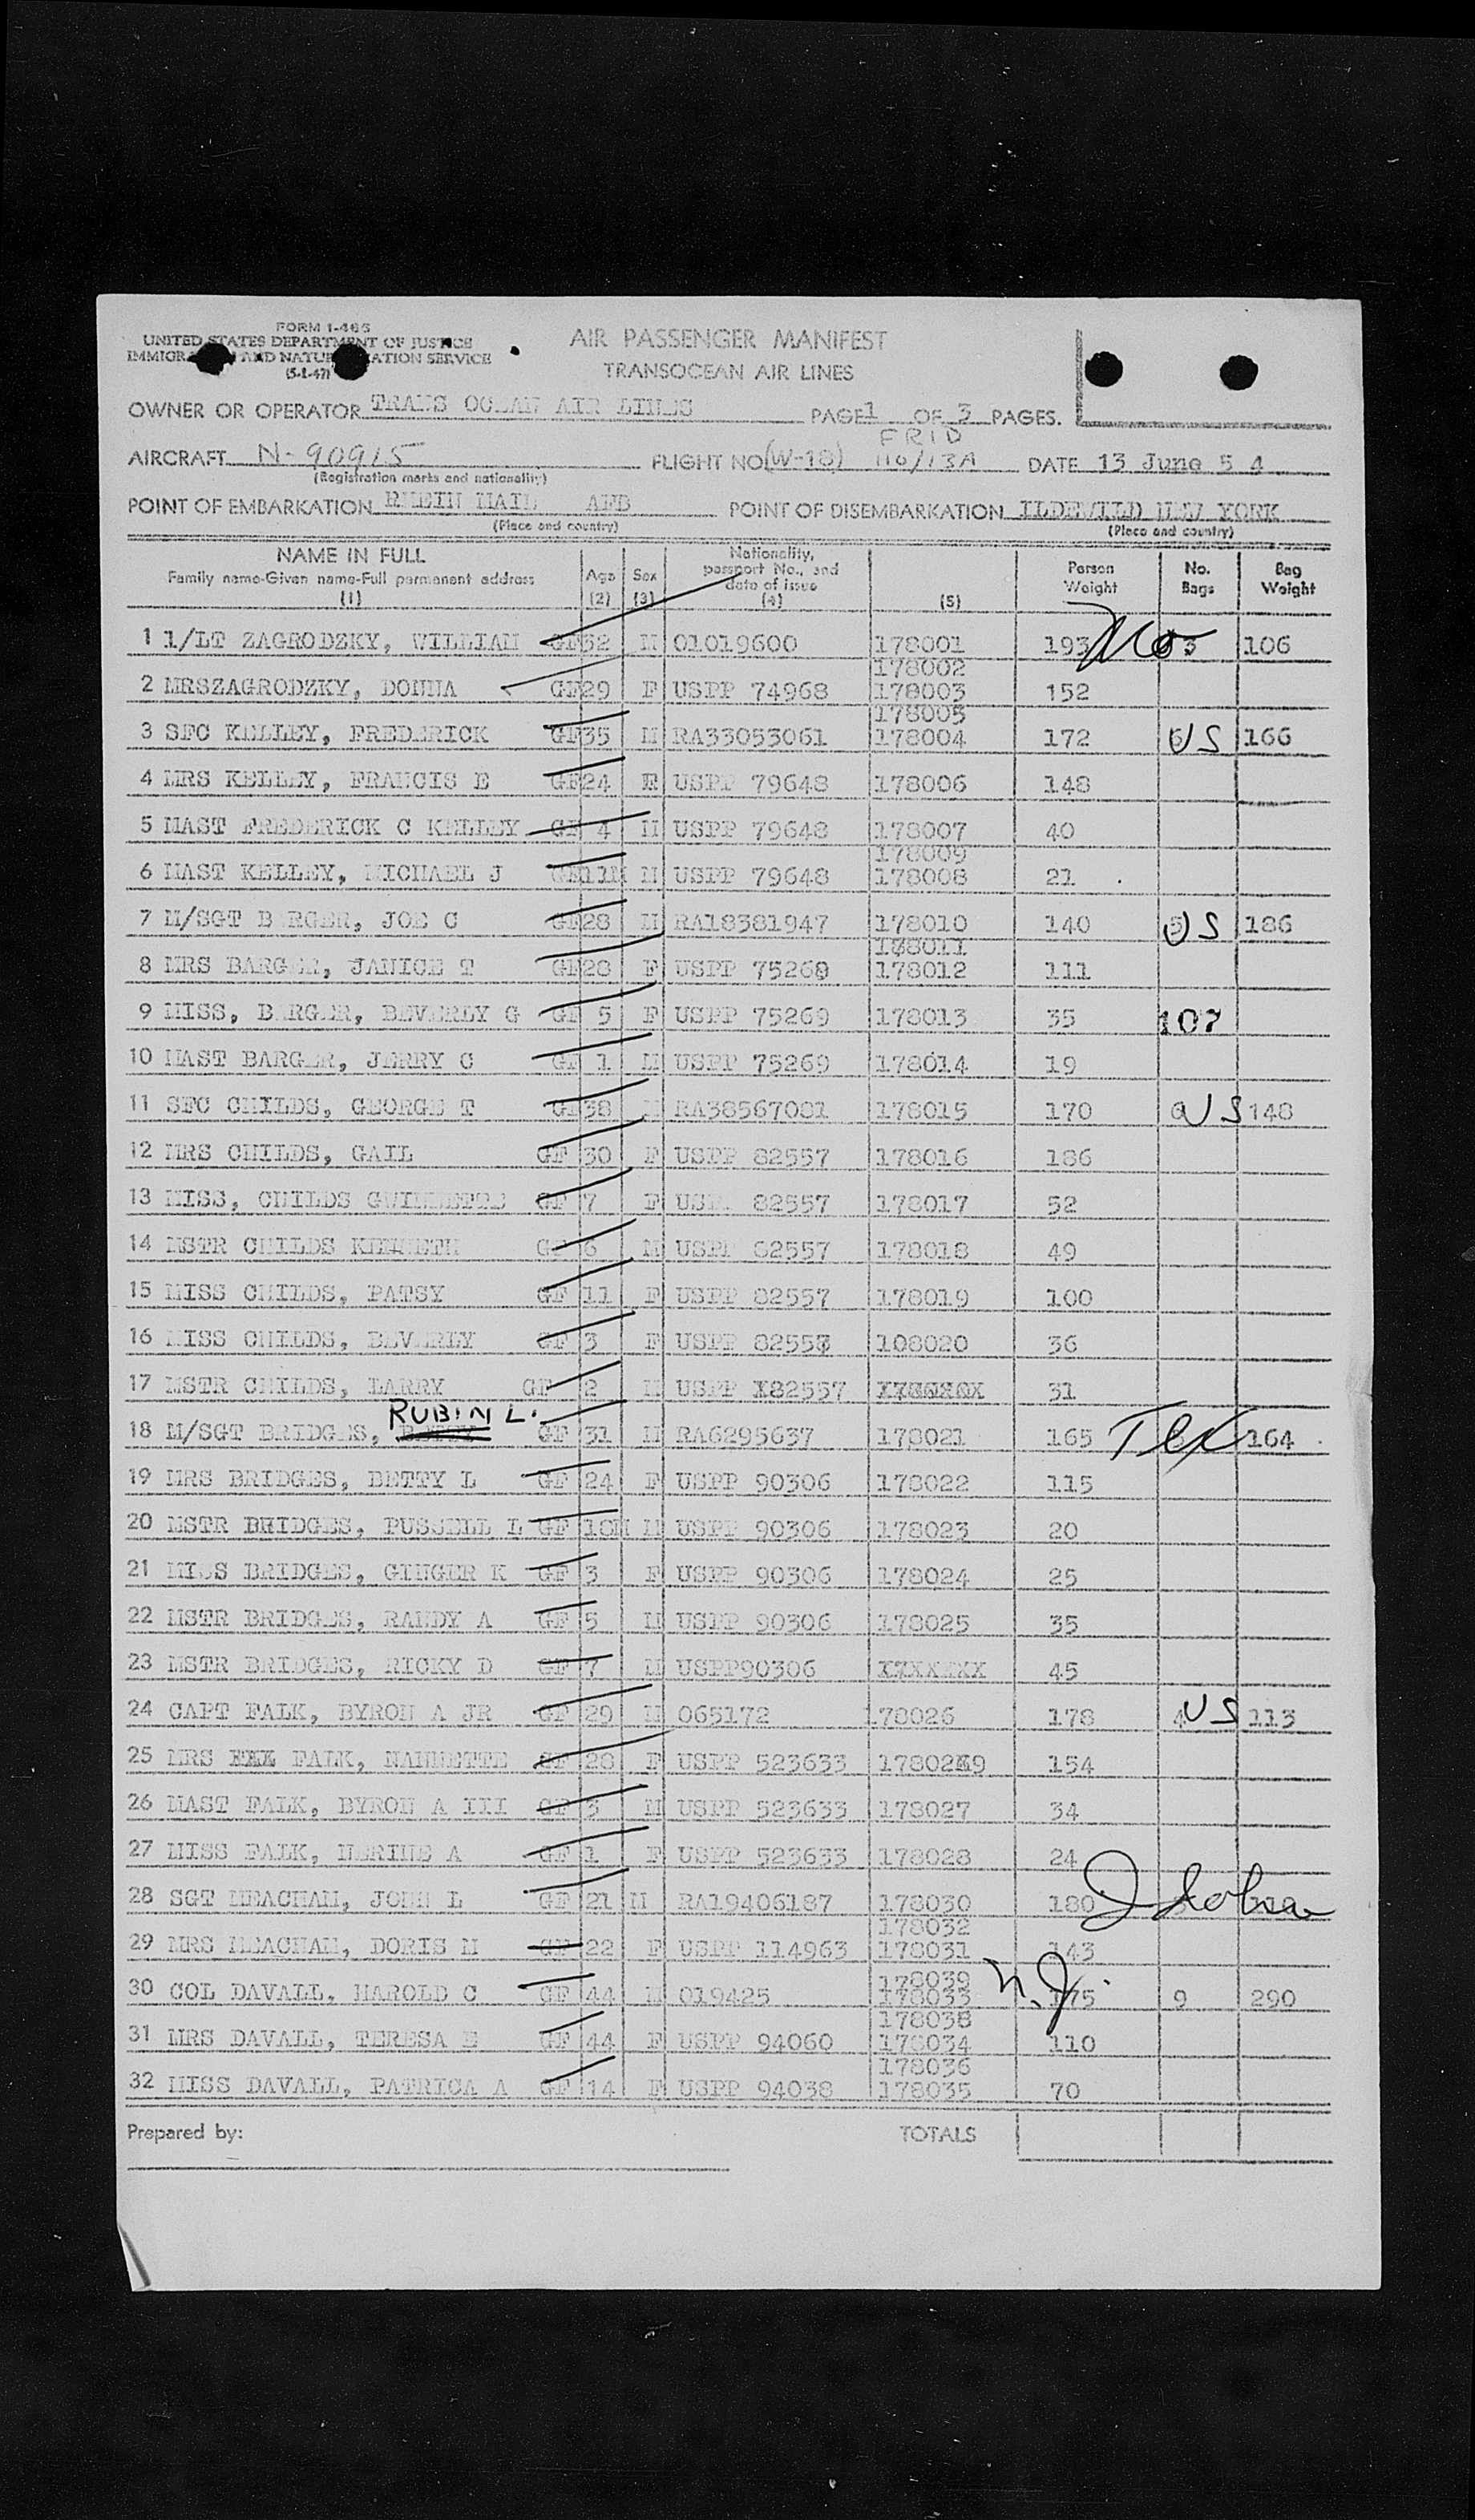 FORM I-466
UNITED STATES DEPARTMENT OF JUSTICE
IMMIGRATION AND NATURALIZATION SERVICE
(5-1-47)
AIR PASSENGER MANIFEST
TRANSOCEAN AIR LINES
OWNER OR OPERATOR TRANS OCEAN AIR LINES PAGE 1 OF 3 PAGES.
FRID
AIRCRAFT N-90915 FLIGHT NO (W-18) 116/13A DATE 13 June 5 4
(Registration marks and nationality)
POINT OF EMBARKATION RHEIN MAIN AFB POINT OF DISEMBARKATION ILDEWILD NEW YORK
(Place and country) (Place and country)
NAME IN FULL
Family name-Given name-Full permanent address
(1)
Age (2) Sex (3) Nationality, passport No., and date of issue (4) (5) Person Weight No. Bags Bag Weight
1 1/LT ZAGRODZKY, WILLIAM GF 32 M 01019600 178001 193 Mo 3 106
178002
2 MRSZAGRODZKY, DONNA GF 29 F USPP 74968 178003 152
178005
3 SFC KELLEY, FREDERICK GF 35 M RA33053061 178004 172 US 166
4 MRS KELLEY, FRANCIS E GF 24 F USPP 79648 178006 148
5 MAST FREDERICK C KELLEY GF 4 M USPP 79648 178007 40
178009
6 MAST KELLEY, MICHAEL J GF 11M M USPP 79648 178008 21
7 M/SGT BARGER, JOE C GF 28 M RA18381947 178010 140 US 186
178011
8 MRS BARGER, JANICE T GF 28 F USPP 75269 178012 111
9 MISS, BARGER, BEVERLY G GF 5 F USPP 75269 178013 35 107
10 MAST BARGER, JERRY C GF 1 M USPP 75269 178014 19
11 SFC CHILDS, GEORGE T GF 38 M RA38567081 178015 170 US 148
12 MRS CHILDS, GAIL GF 30 F USPP 82557 178016 186
13 MISS, CHILDS GWINNETTE GF 7 F USPP 82557 178017 52
14 MSTR CHILDS KENNETH GF 6 M USPP 82557 178018 49
15 MISS CHILDS, PATSY GF 11 F USPP 82557 178019 100
16 MISS CHILDS, BEVERLY GF 3 F USPP 82557 108020 36
17 MSTR CHILDS, LARRY GF 2 M USPP X82557 31
RUBIN L.
18 M/SGT BRIDGES, GF 31 M RA6295637 178021 165 Tex 164
19 MRS BRIDGES, BETTY L GF 24 F USPP 90306 178022 115
20 MSTR BRIDGES, RUSSELL L GF 18M M USPP 90306 178023 20
21 MISS BRIDGES, GINGER K GF 3 F USPP 90306 178024 25
22 MSTR BRIDGES, RANDY A GF 5 M USPP 90306 178025 35
23 MSTR BRIDGES, RICKY D GF 7 M USPP90306 45
24 CAPT FALK, BYRON A JR GF 29 M 065172 178026 178 4 US 113
25 MRS FALK, NANNETTE GF 28 F USPP 523633 178029 154
26 MAST FALK, BYRON A III GF 3 M USPP 523633 178027 34
27 MISS FALK, NERINE A GF 1 F USPP 523633 178028 24
28 SGT MEACHAM, JOHN L GF 21 M RA19406187 178030 180 Idaho
178032
29 MRS MEACHAM, DORIS M GF 22 F USPP 114963 178031 143
178039
30 COL DAVALL, HAROLD C GF 44 M 019425 178033 N.J. 175 9 290
178038
31 MRS DAVALL, TERESA E GF 44 F USPP 94060 178034 110
178036
32 MISS DAVALL, PATRICA A GF 14 F USPP 94038 178035 70
Prepared by: TOTALS